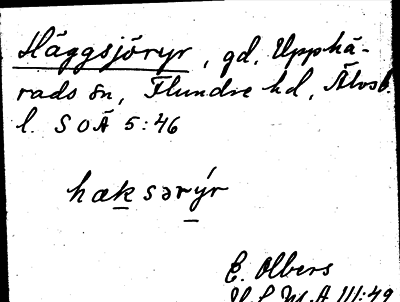 Häggsjöryr, gd. Upphä-
rads sn, Flundre hd, Älvsb.
l. SOÄ 5:46
hæk sərýr
E. Olbers
III:49